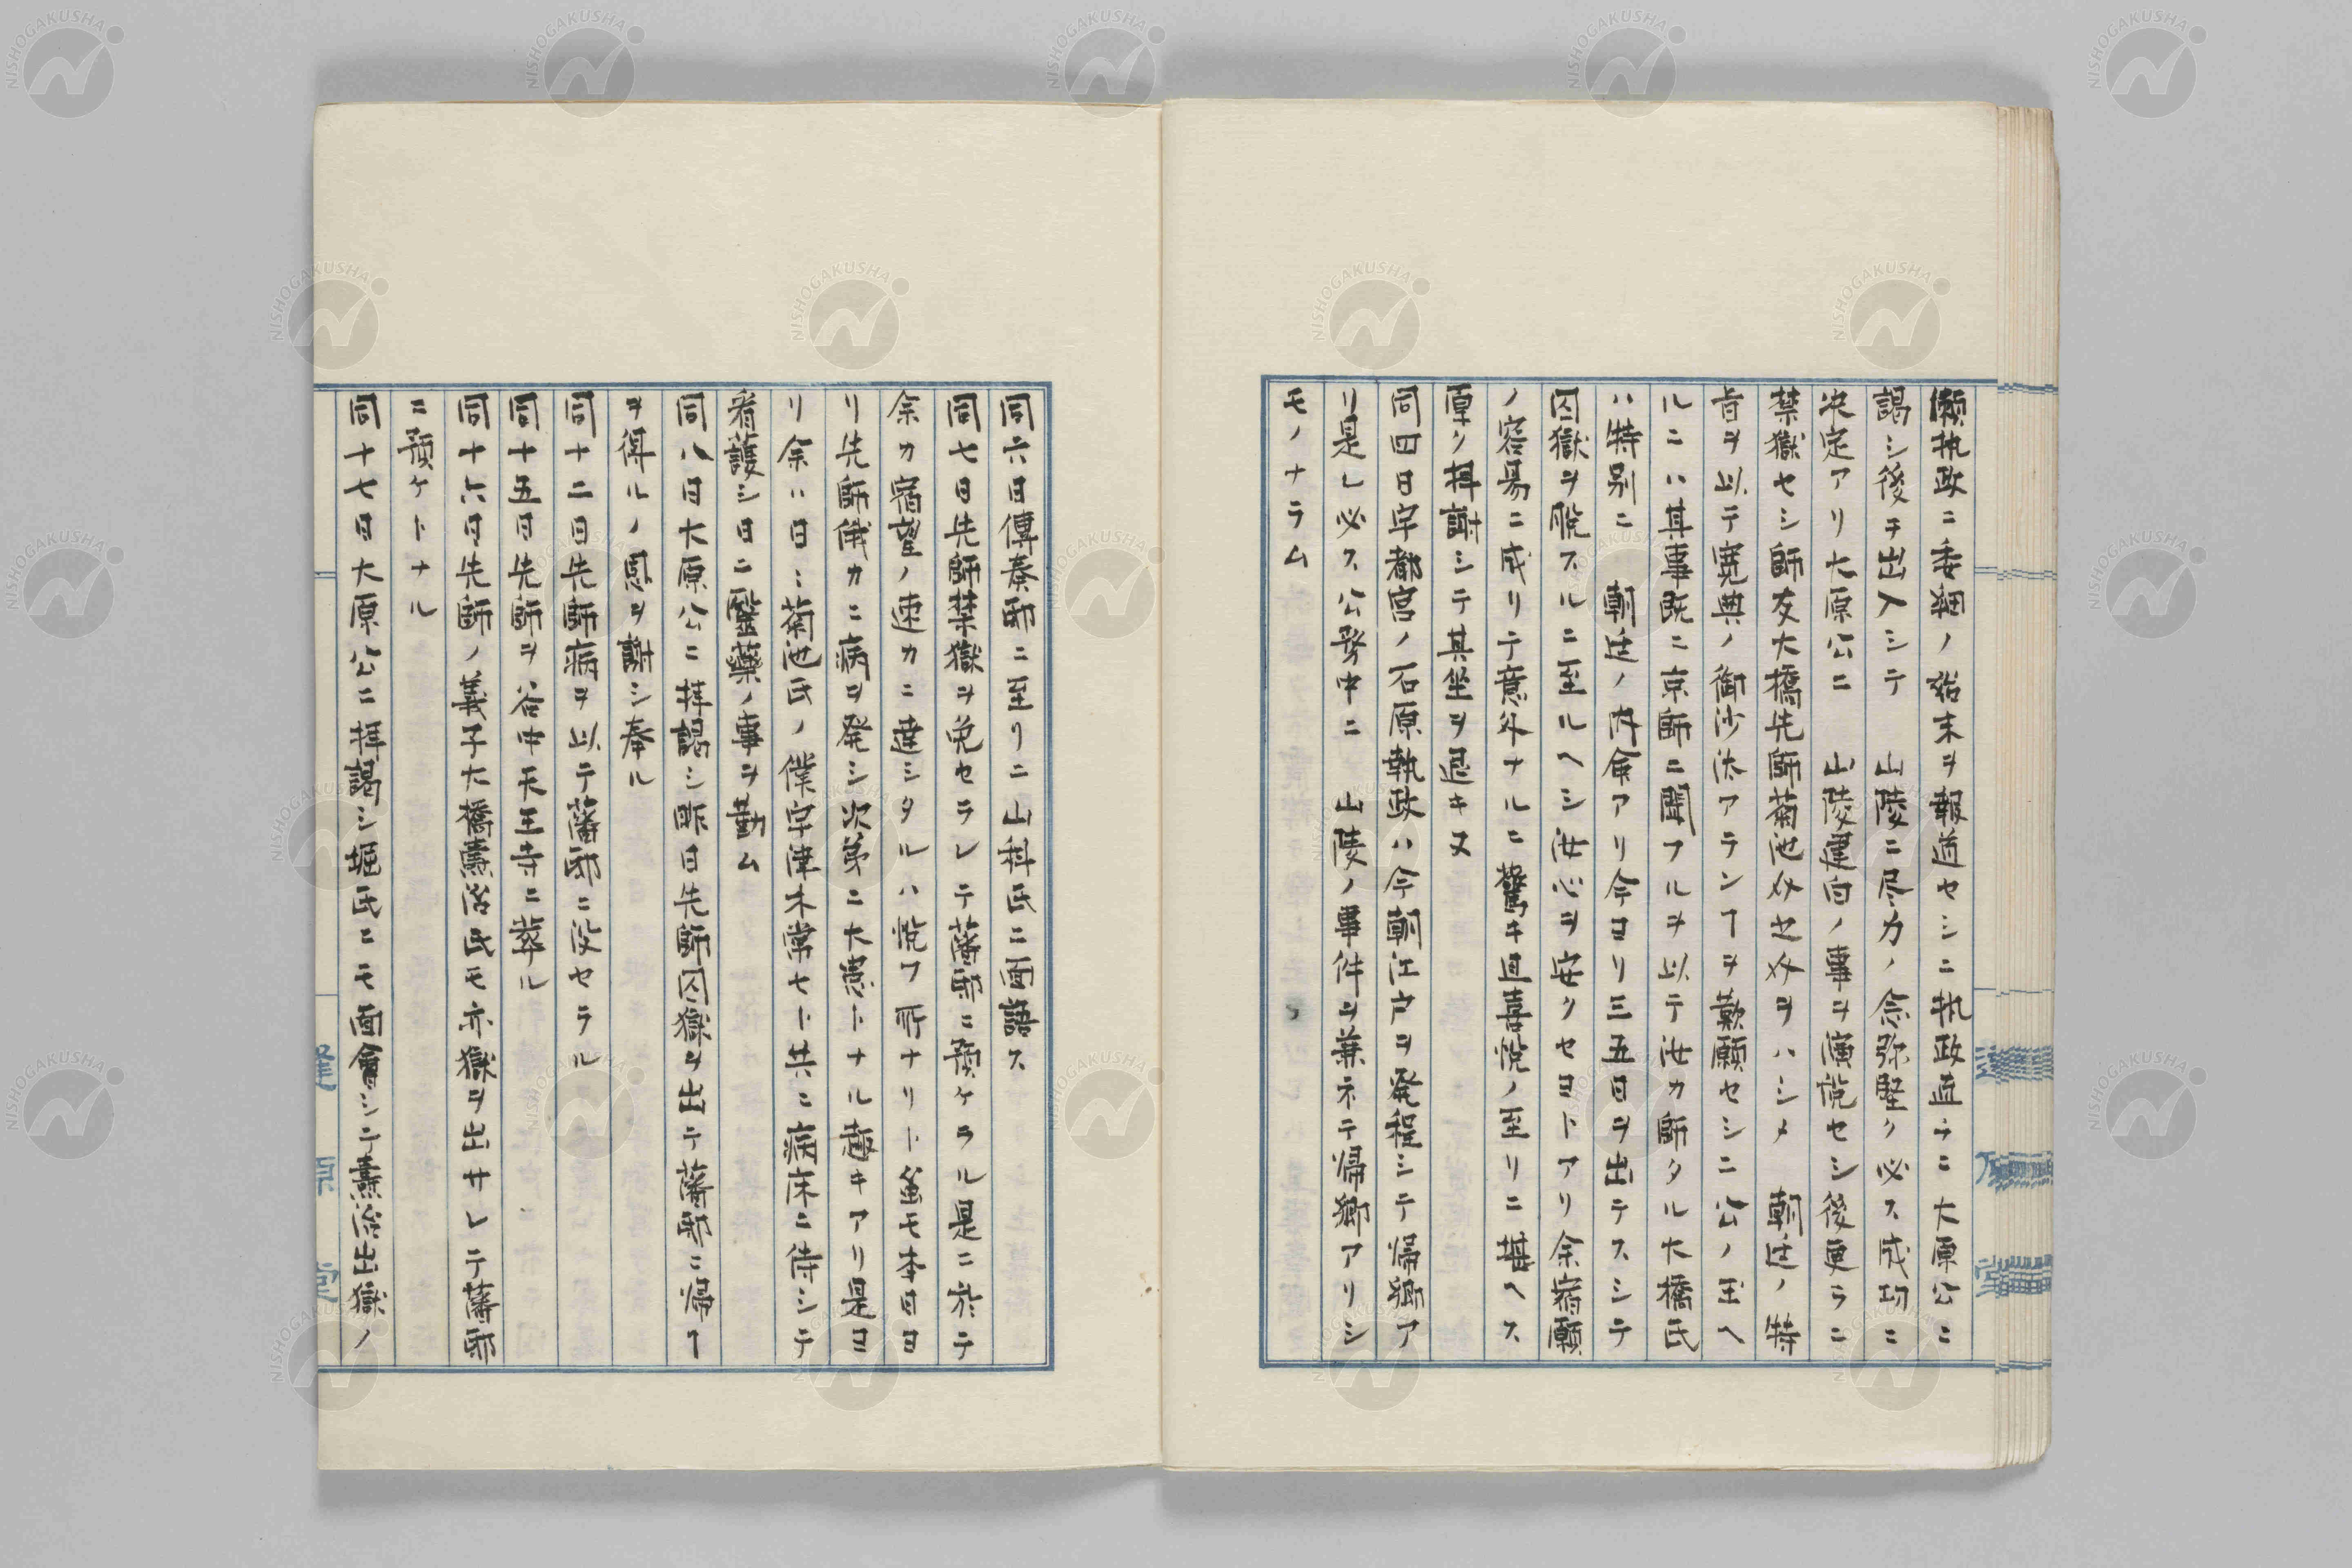 願執政ニ委細ノ始末ヲ報道セシニ執政直チニ大原公ニ
謁シ後チ出入シテ　山陵ニ尽力ノ念弥堅ク必ス成功ニ
决定アリ大原公ニ　山陵建白ノ事ヲ演説セシ後更ラニ
禁獄セシ師友大橋先師菊池父セ父ヲハシメ　朝廷ノ特
旨ヲ以テ寛典ノ御沙汰アランヿヲ歎願セシニ公ノ玉ヘ
ルニハ其事既ニ京師ニ聞フルヲ以テ汝カ師タル大橋氏
ハ特別ニ　朝廷ノ内命アリ今ヨリ三五日ヲ出テスシテ
囚獄ヲ脱スルニ至ルヘシ汝心ヲ安クセヨトアリ余宿願
ノ容易ニ成リテ意外ナルニ驚キ且喜悦ノ至リニ堪ヘス
厚ク拝謝シテ其坐ヲ退キヌ
同四日宇都宮ノ石原執政ハ今朝江戸ヲ発程シテ帰郷ア
リ是レ必ス公務中ニ　山陵ノ事件ヲ兼ネテ帰郷アリシ
モノナラム
同六日傳奏邸ニ至リニ山科氏ニ面謁ス
同七日先師禁獄ヲ免セラレテ藩邸ニ預ケラル是ニ於テ
余カ宿望ノ速カニ達シタルハ悦フ所ナリト雖モ本日ヨ
リ先師俄カニ病ヲ発シ次第ニ大患トナル趣キアリ是ヨ
リ余ハ日ニ菊池氏ノ僕宇津木常七ト共ニ病床ニ侍シテ
看護シ日ニ醫藥ノ事ヲ勤ム
同八日大原公ニ拝謁シ昨日先師囚獄ヲ出テ藩邸ニ帰ヿ
ヲ得ルノ恩ヲ謝シ奉ル
同十二日先師病ヲ以テ藩邸ニ没セラル
同十五日先師ヲ谷中天王寺ニ葬ル
同十六日先師ノ義子大橋燾治氏モ亦獄ヲ出サレテ藩邸
ニ預ケトナル
同十七日大原公ニ拝謁シ堀氏ニモ面會シテ燾治出獄ノ
逢原堂
NISHOGAKUSHA